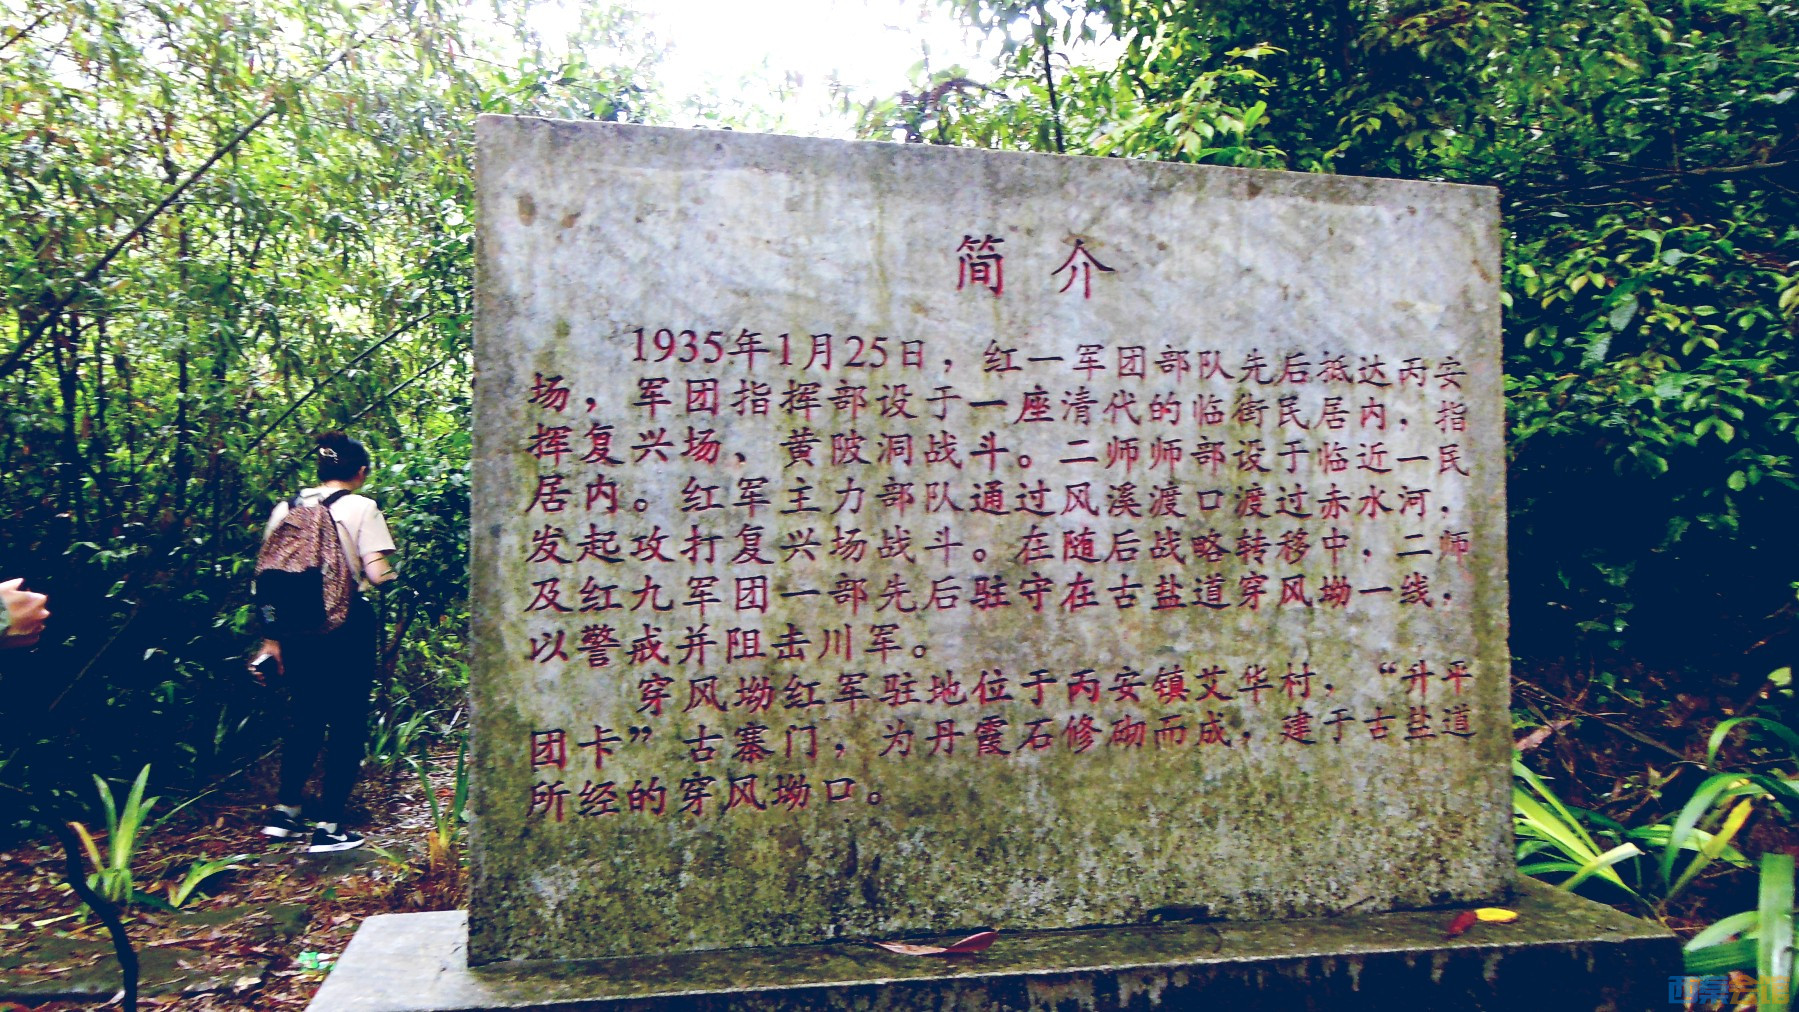 简介
1935年1月25日，红一军团部队先后抵达丙安
场，军团指挥部设于一座清代的临街民居内，指
挥复兴场、黄陂洞战斗。二师师部设于临近一民
居内。红军主力部队通过风溪渡口渡过赤水河，
发起攻打复兴场战斗。在随后战略转移中，二师
及红九军团一部先后驻守在古盐道穿风坳一线，
以警戒并阻击川军。
穿风坳红军驻地位于丙安镇艾华村，“升平
团卡”古寨门，为丹霞石修砌而成，建于古盐道
所经的穿风坳口。